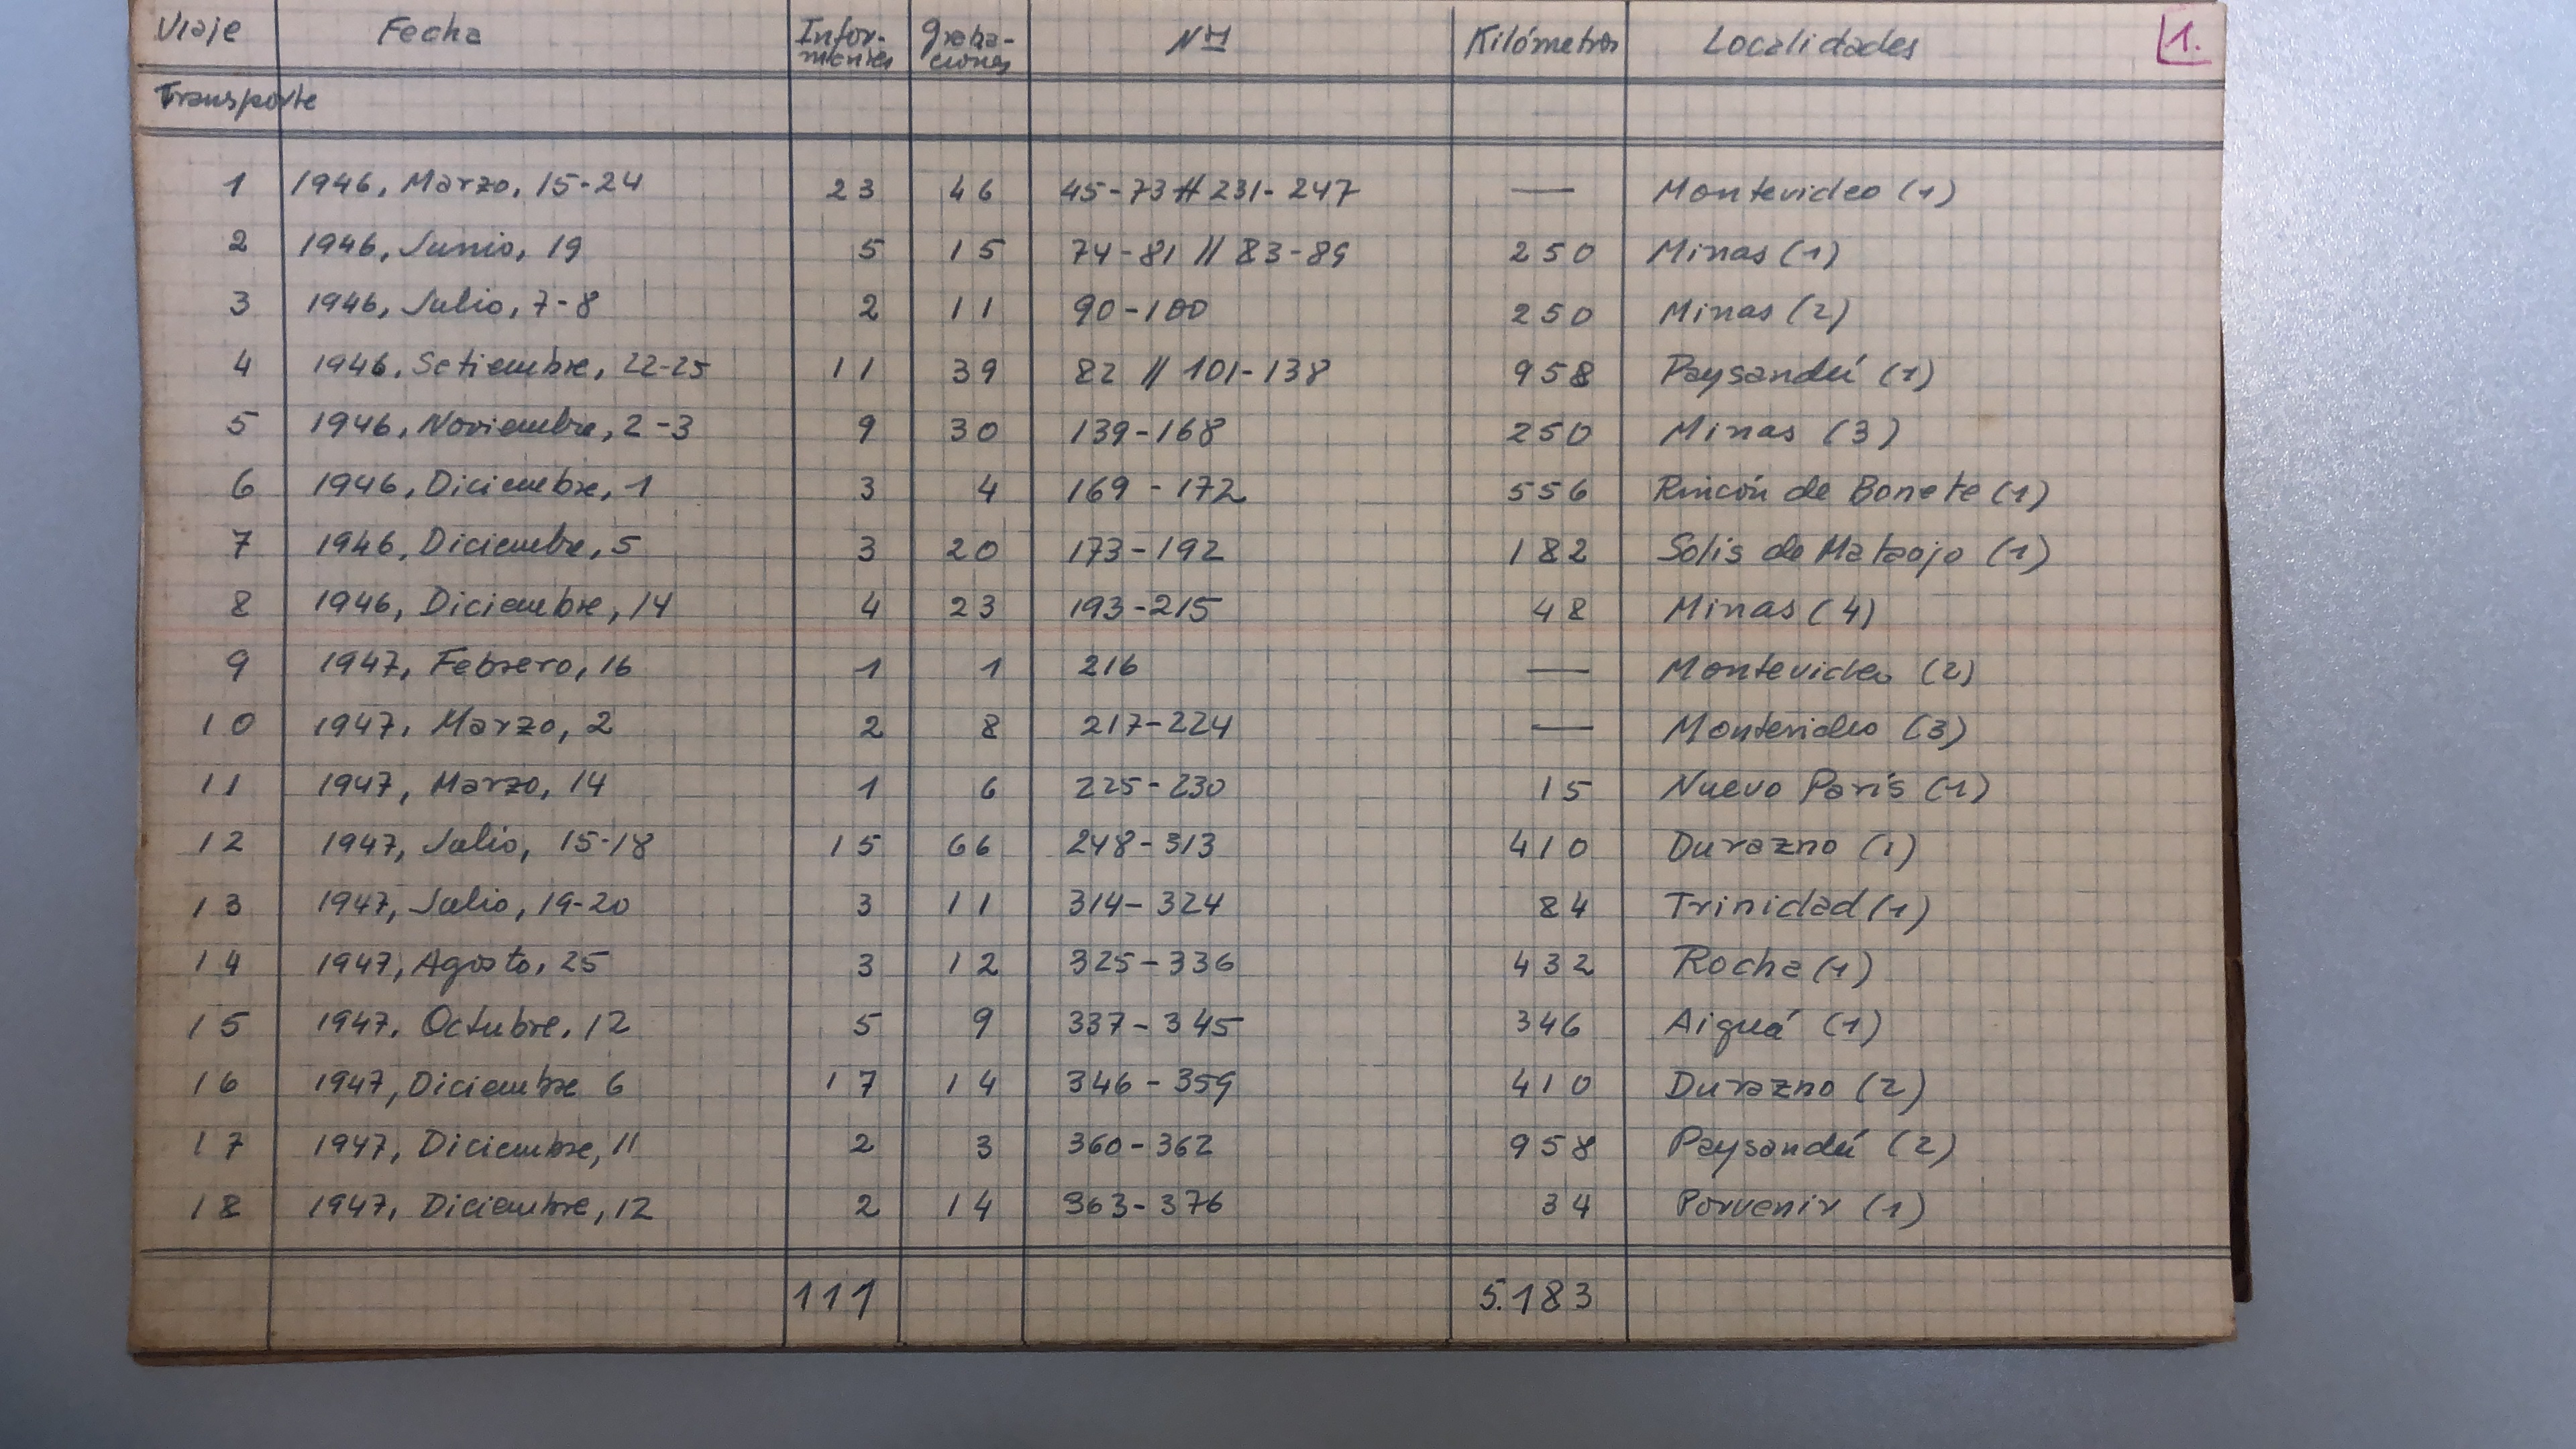 Viaje Fecha Infor-mantes Graba-ciones Nos Kilómetros Localidades 1.
Transporte
1 1946, Marzo, 15-24 23 46 45-73 // 231-247 — Montevideo (1)
2 1946, Junio, 19 5 15 74-81 // 83-89 250 Minas (1)
3 1946, Julio, 7-8 2 11 90-100 250 Minas (2)
4 1946, Setiembre, 22-25 11 39 82 // 101-138 958 Paysandú (1)
5 1946, Noviembre, 2-3 9 30 139-168 250 Minas (3)
6 1946, Diciembre, 1 3 4 169-172 556 Rincón de Bonete (1)
7 1946, Diciembre, 5 3 20 173-192 182 Solis de Mataojo (1)
8 1946, Diciembre, 14 4 23 193-215 48 Minas (4)
9 1947, Febrero, 16 1 1 216 — Montevideo (2)
10 1947, Marzo, 2 2 8 217-224 — Montevideo (3)
11 1947, Marzo, 14 1 6 225-230 15 Nuevo París (1)
12 1947, Julio, 15-18 15 66 248-313 410 Durazno (1)
13 1947, Julio, 19-20 3 11 314-324 84 Trinidad (1)
14 1947, Agosto, 25 3 12 325-336 432 Rocha (1)
15 1947, Octubre, 12 5 9 337-345 346 Aiguá (1)
16 1947, Diciembre 6 17 14 346-359 410 Durazno (2)
17 1947, Diciembre, 11 2 3 360-362 958 Paysandú (2)
18 1947, Diciembre, 12 2 14 363-376 34 Porvenir (1)
111 5.183